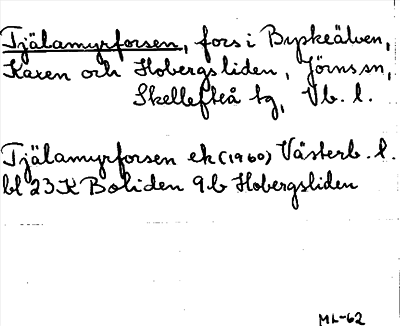 Tjälamyrforsen, fors i Byskeälven,
Kaxen och Hobergsliden, Jörns sn,
Skellefteå tg, Vb. l.
Tjälamyrforsen ek (1960) Västerb. l.
bl 23 K Boliden 9 b Hobergsliden
ML-62